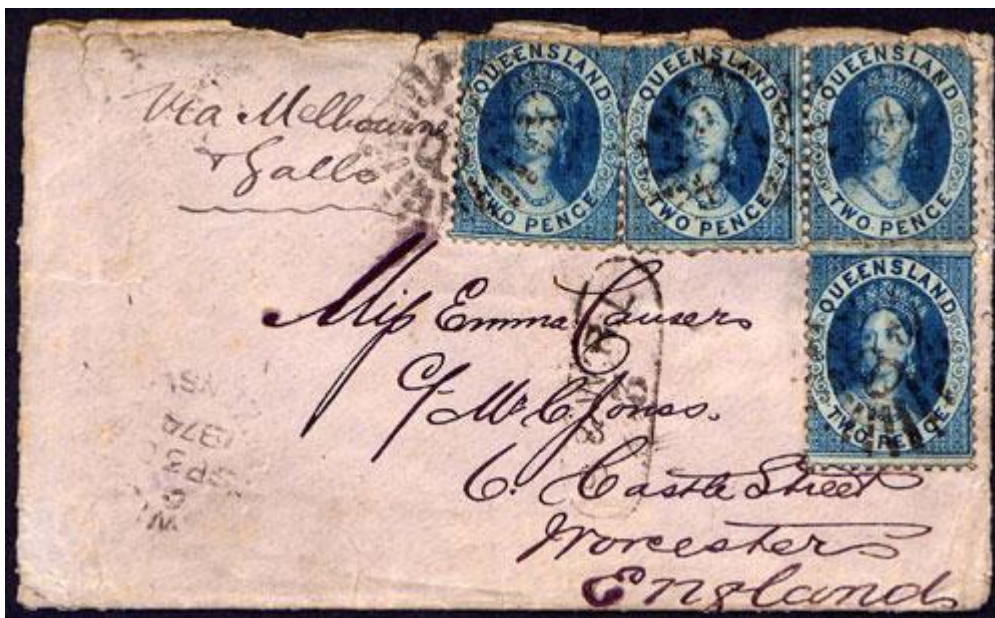 Via Melbourne
& Galle
QUEENSLAND
TWO PENCE
QUEENSLAND
TWO PENCE
QUEENSLAND
TWO PENCE
QUEENSLAND
TWO PENCE
Miss Emma Causer
c/- Mr C. Jones.
6. Castle Street
Worcester
England